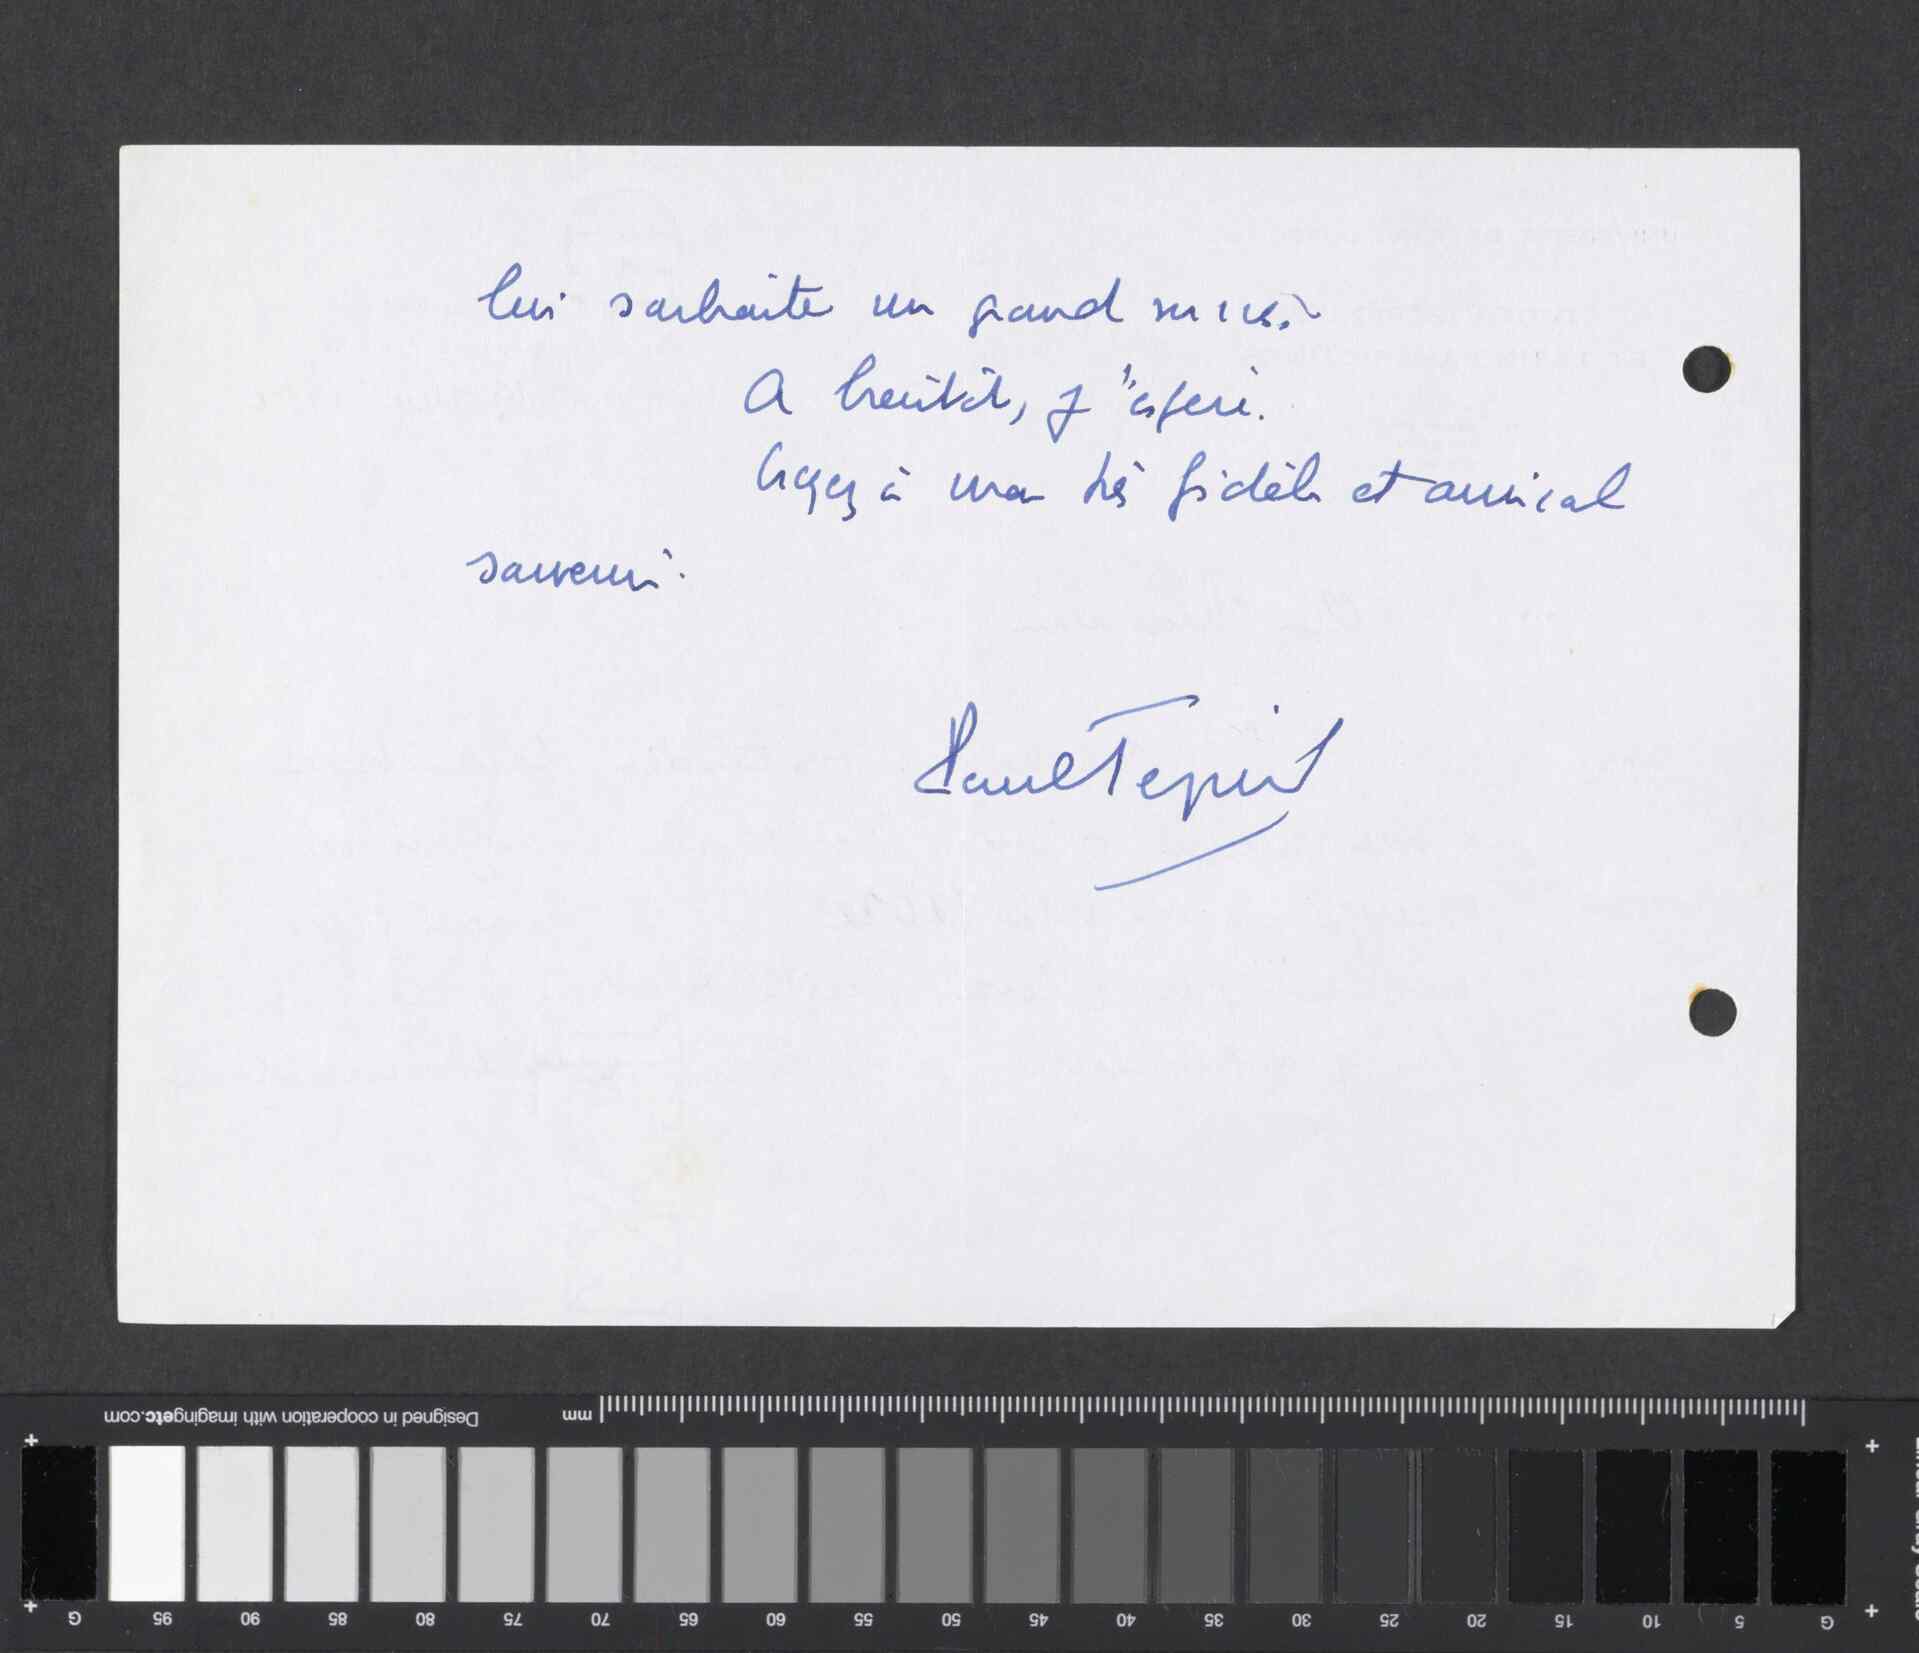 lui souhaite un grand succès.
A bientôt, j'espère.
Croyez à mon très fidèle et amical
souvenir.
Paul
mm
Designed in cooperation with imagingetc.com
G 95 90 85 80 75 70 65 60 55 50 45 40 35 30 25 20 15 10 5 G